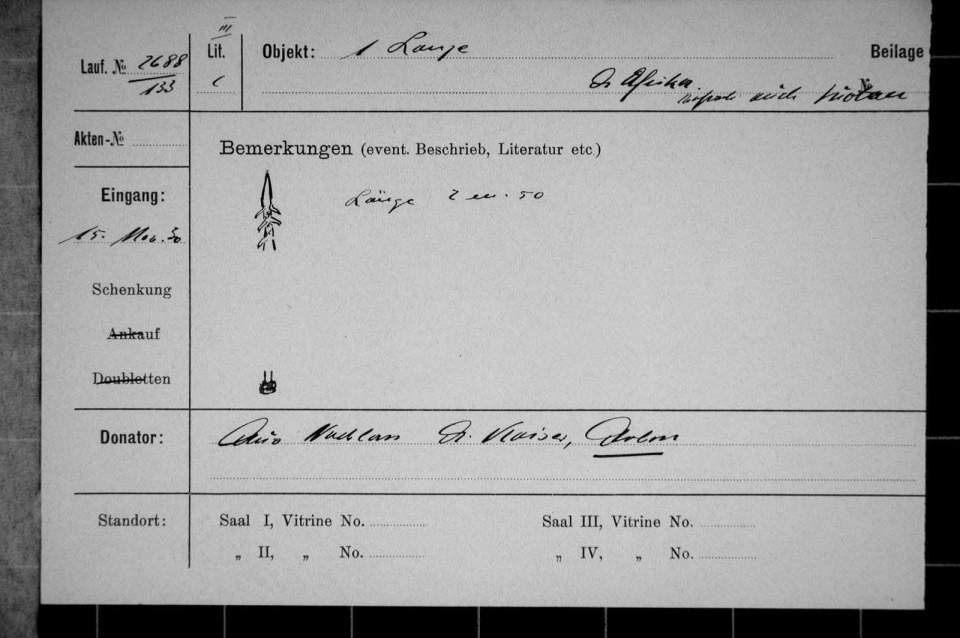 III
Lauf. № 2688
133
Lit.
c
Objekt: 1 Lanze
Beilage №
Afrika auch
Akten-№
Bemerkungen (event. Beschrieb, Literatur etc.)
Eingang:
15. Nov. 30
Länge 2 m. 50
Schenkung
Ankauf
Doubletten
Donator: Aus Nachlass Dr. Kaiser, Arbon
Standort:
Saal I, Vitrine No.
„ II, „ No.
Saal III, Vitrine No.
„ IV, „ No.